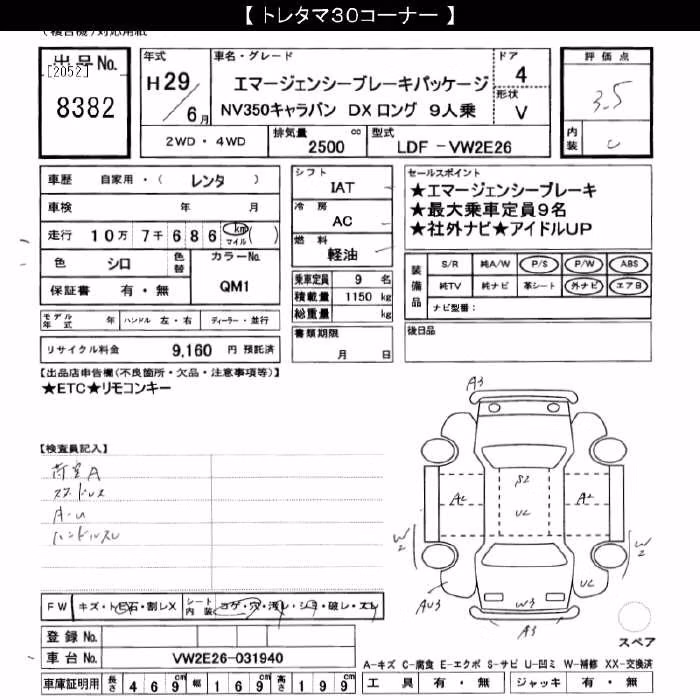 【 トレタマ30コーナー 】
(複合機)対応用紙
出品No.
[2052]
8382
年式
H29/6月
車名・グレード
エマージェンシーブレーキパッケージ
NV350キャラバン DX ロング 9人乗
ドア
4
形状
V
評価点
3.5
内装
C
2WD・4WD
排気量 2500 cc
型式 LDF-VW2E26
車歴 自家用・( レンタ )
車検 年 月
走行 10万 7千 686 km マイル ( )
色 シロ 色替
カラーNo. QM1
保証書 有・無
モデル年式 年 ハンドル 左・右 ディーラー・並行
リサイクル料金 9,160 円 預託済
シフト IAT
冷房 AC
燃料 軽油
乗車定員 9 名
積載量 1150 kg
総重量 kg
書類期限
月 日
セールスポイント
★エマージェンシーブレーキ
★最大乗車定員9名
★社外ナビ★アイドルUP
装備品
S/R 純A/W P/S P/W ABS
純TV 純ナビ 革シート 外ナビ エアB
ナビ型番:
後日品
【出品店申告欄(不良箇所・欠品・注意事項等)】
★ETC★リモコンキー
【検査員記入】
荷室A
ステドレス
A-U
ハンドルスレ
FW キズ・トビ石・割レX
シート内装 コゲ・穴・汚レ・シミ・破レ・スレ
登録No.
車台No. VW2E26-031940
車庫証明用 長さ 469cm 幅 169cm 高さ 199cm
A3
S2
A2
U2
A2
W2
W2
AU3
U2
W3
A3
スペア
A-キズ C-腐食 E-エクボ S-サビ U-凹ミ W-補修 XX-交換済
工具 有・無 ジャッキ 有・無